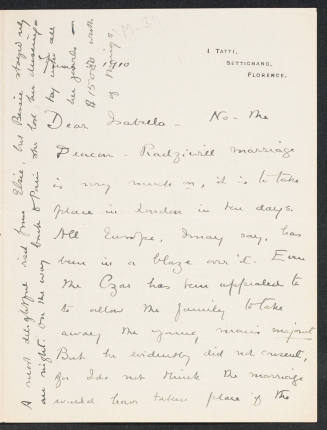 I TATTI,
SETTIGNANO,
FLORENCE.
1910
Dear Isabella - No - the
Deacon - Radziwill marriage
is very much on, it is to take
place in London in ten days.
All Europe, I may say, has
been in a blaze over it. Even
the Czar has been appealed to
to allow the family to take
away the young man's majorat
But he evidently did not consent,
for I do not think the marriage
would have taken place if the
A most delightful visit from Elsie, but Bessie stayed only
one night. On the way back to Paris she lost her dressing-
bag with all
her jewels -
$15000 worth
of things.